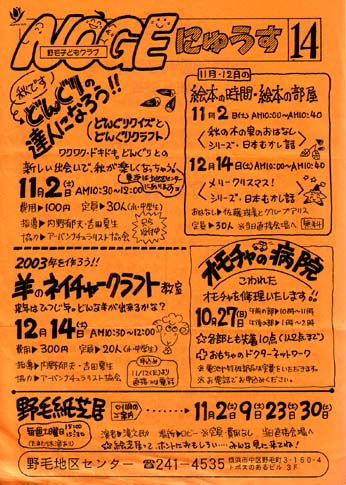 NOGE にゅうす 14
野毛子どもクラブ
秋です
どんぐりの
達人になろう!!
(どんぐりクイズと
どんぐりクラフト)
ワクワク・ドキドキ どんぐりとの
新しい出会いで、秋が楽しくなっちゃう。
11月2日(土)AM10:30〜12:00
費用▶100円 定員▶30人(小・中学生)
指導▶内野郁夫・吉田夏生
協力▶アーバンナチュラリスト協会
11月・12月の
絵本の時間・絵本の部屋
11月2日(土)AM10:00〜AM10:40
秋の木の実のおはなし
シリーズ・日本むかし話
12月14日(土)AM10:00〜AM10:40
メリークリスマス!
シリーズ・日本むかし話
定員▶30人 ※当日直接会場へ
無料
2003年を作ろう!!
羊のネイチャークラフト教室
来年はひつじ年。どんな羊が出来るかな?
12月14日(土)AM10:30〜12:00
費用▶300円 定員▶20人(小・中学生)
指導▶内野郁夫・吉田夏生
協力▶アーバンナチュラリスト協会
オモチャの病院
こわれた
オモチャを修理いたします!!
10月27日(日)
午前の部▶10時〜11時
午後の部▶1時〜2時
☆各部とも先着10点(1人2点まで)
☆おもちゃのドクターネットワーク
※お電話でお申込みください。
野毛紙芝居
11月2日9日23日30日
毎週土曜日
場所▶ロビー ※定員・費用なし 当日直接会場へ
野毛地区センター ☎241-4535
横浜市中区野毛町3-160-4